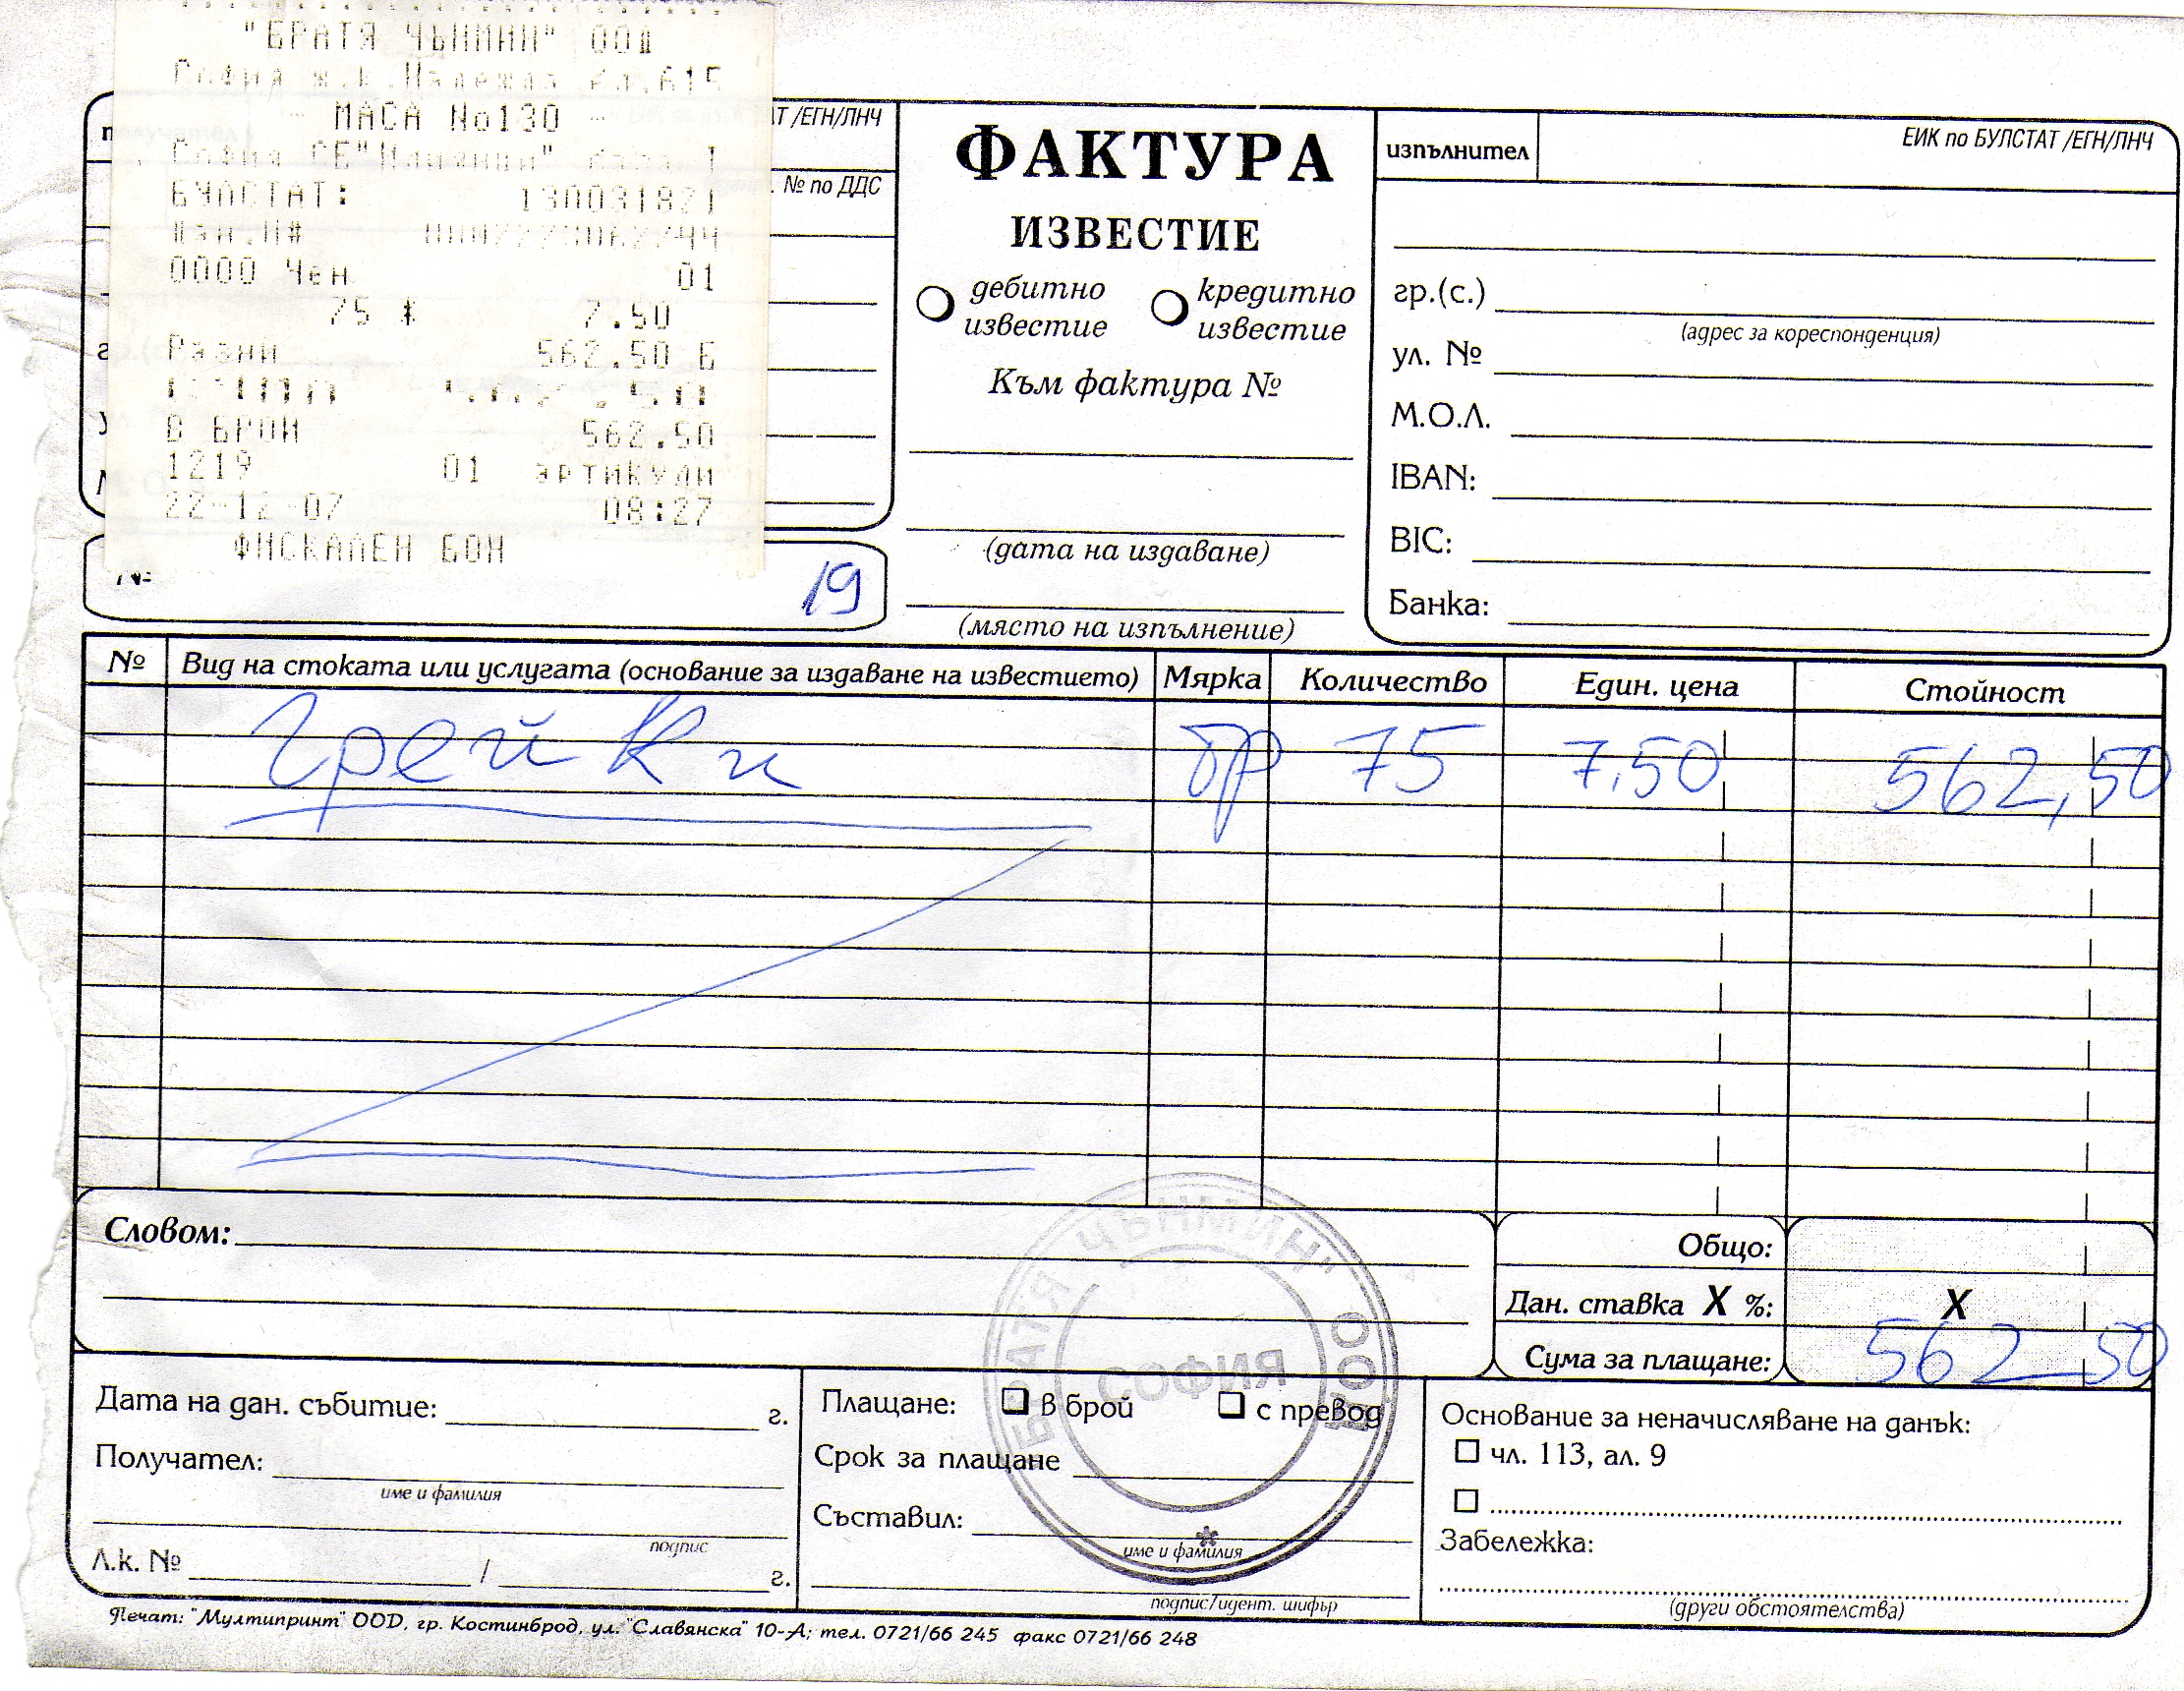 "БРАТЯ ЧЪНМИН" ООД
София ж.к. Надежда бл.615
МАСА No130
София СБ"Илиянци"
БУЛСТАТ: 130031821
0000 Чен 01
75 * 7.50
Разни 562.50 Б
В БРОЙ 562.50
1219 01 артикули
22-12-07 08:27
ФИСКАЛЕН БОН
АТ /ЕГН/ЛНЧ
№ по ДДС
№
19
ФАКТУРА
ИЗВЕСТИЕ
дебитно известие
кредитно известие
Към фактура №
(дата на издаване)
(място на изпълнение)
изпълнител
ЕИК по БУЛСТАТ /ЕГН/ЛНЧ
гр.(с.)
(адрес за кореспонденция)
ул. №
М.О.Л.
IBAN:
BIC:
Банка:
№ Вид на стоката или услугата (основание за издаване на известието) Мярка Количество Един. цена Стойност
Грейки бр 75 7,50 562,50
Словом:
Общо:
Дан. ставка X %: X
Сума за плащане: 562 50
"БРАТЯ ЧЪНМИН" ООД
СОФИЯ
Дата на дан. събитие: г.
Получател:
име и фамилия
подпис
Л.к. № / г.
Плащане: в брой с превод
Срок за плащане
Съставил:
име и фамилия
подпис/идент. шифър
Основание за неначисляване на данък:
чл. 113, ал. 9
Забележка:
(други обстоятелства)
Печат: "Мултипринт" ООD, гр. Костинброд, ул. "Славянска" 10-А; тел. 0721/66 245 факс 0721/66 248